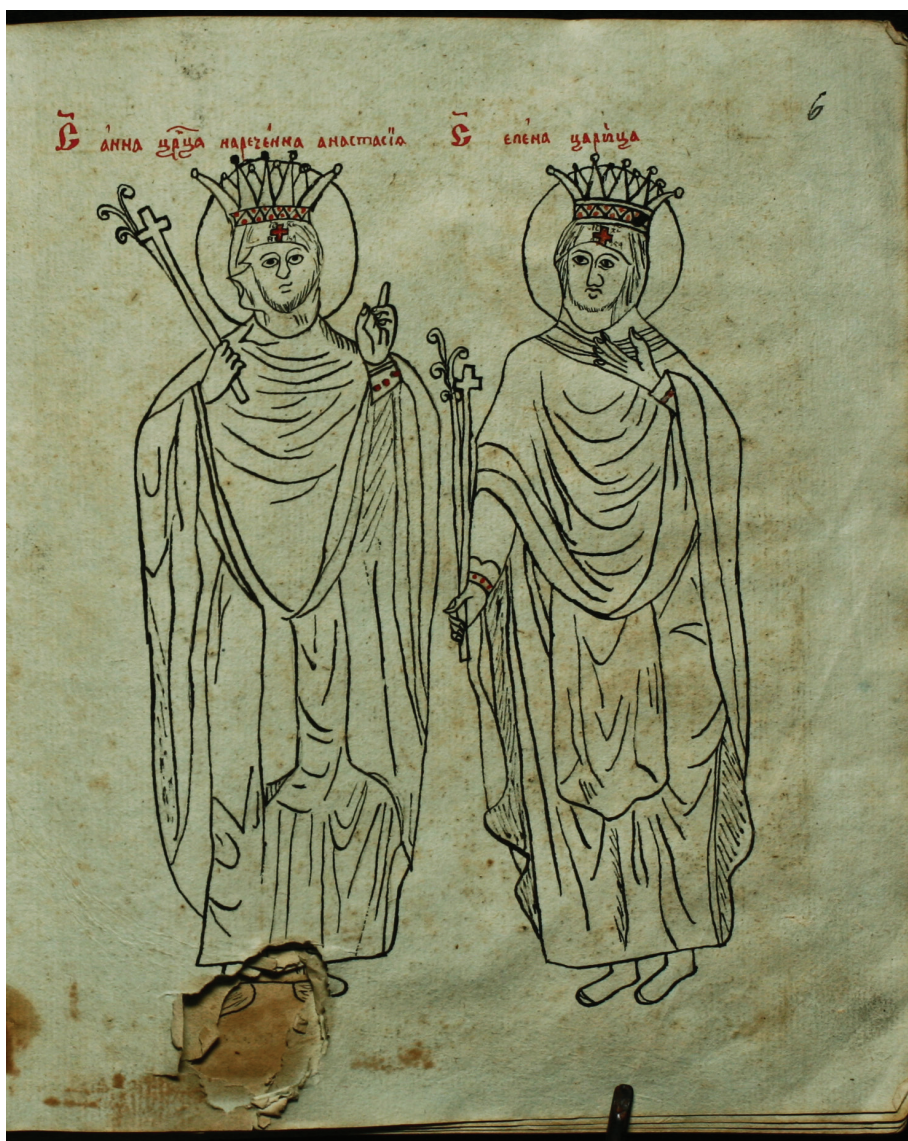 С҃ а́нна цр҃ца нарече́нна анастасі́а
С҃ еле́на цари́ца
6